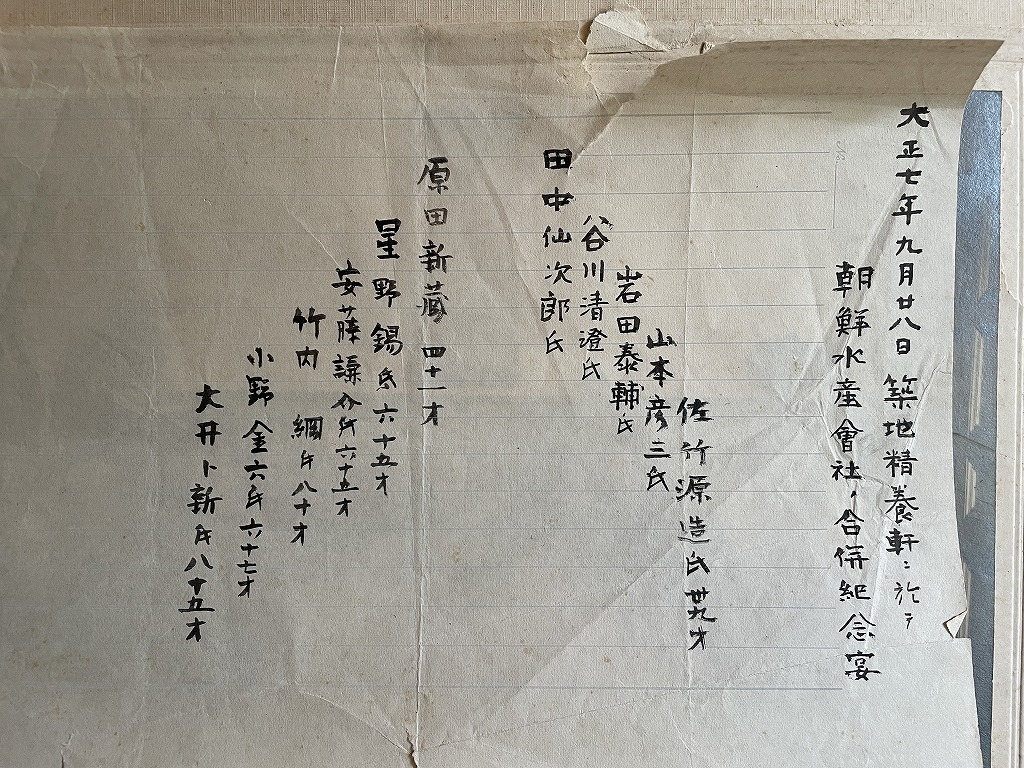 大正七年九月廿八日 築地精養軒ニ於テ
朝鮮水産會社ノ合併紀念宴
佐竹源造氏 卅九才
山本彦三氏
岩田泰輔氏
谷川清澄氏
田中仙次郎氏
原田新蔵 四十一才
星野錫氏 六十五才
安藤謙介氏 六十五才
竹内 綱氏 八十才
小野金六氏 六十七才
大井卜新氏 八十五才